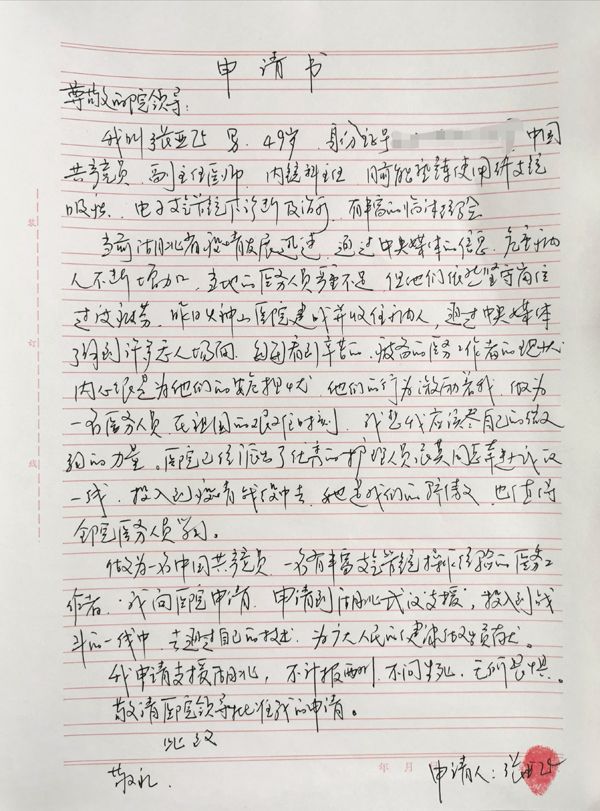 申请书
尊敬的院领导:
我叫张亚 男 49岁 身份证号 中国
共产党员 副主任医师 内镜科主任 目前能熟练使用纤支镜
吸 、电子支气管镜 诊断及治疗 有丰富的临床经验
当前湖北省疫情发展迅速 通过中央媒体的信息 危重病
人不断增加 当地的医务人员严重不足 但他们依然坚守岗位
过度疲劳 昨日火神山医院建成并收住病人 通过中央媒体
了解到许多感人场面 每每看到辛苦的 疲惫的医务工作者的现状
内心很是为他们的安危担忧 他们的行为激励着我 做为
一名医务人员 在祖国的 时刻 我想我应该尽自己的微
弱的力量。医院已经派出了优秀的护理人员 奔赴武汉
一线 投入到疫情战役中去 她是我们的骄傲 也值得
全院医务人员学习。
做为一名中国共产党员 一名有丰富支气管镜操作经验的医务工
作者 我向医院申请 申请到湖北武汉支援,投入到战
斗的一线中 去通过自己的技术 为广大人民的健康做出贡献。
我申请支援湖北, 不计报酬 不问生死 无所畏惧。
敬请医院领导批准我的申请。
此致
敬礼
年 月
申请人:张亚
装
订
线